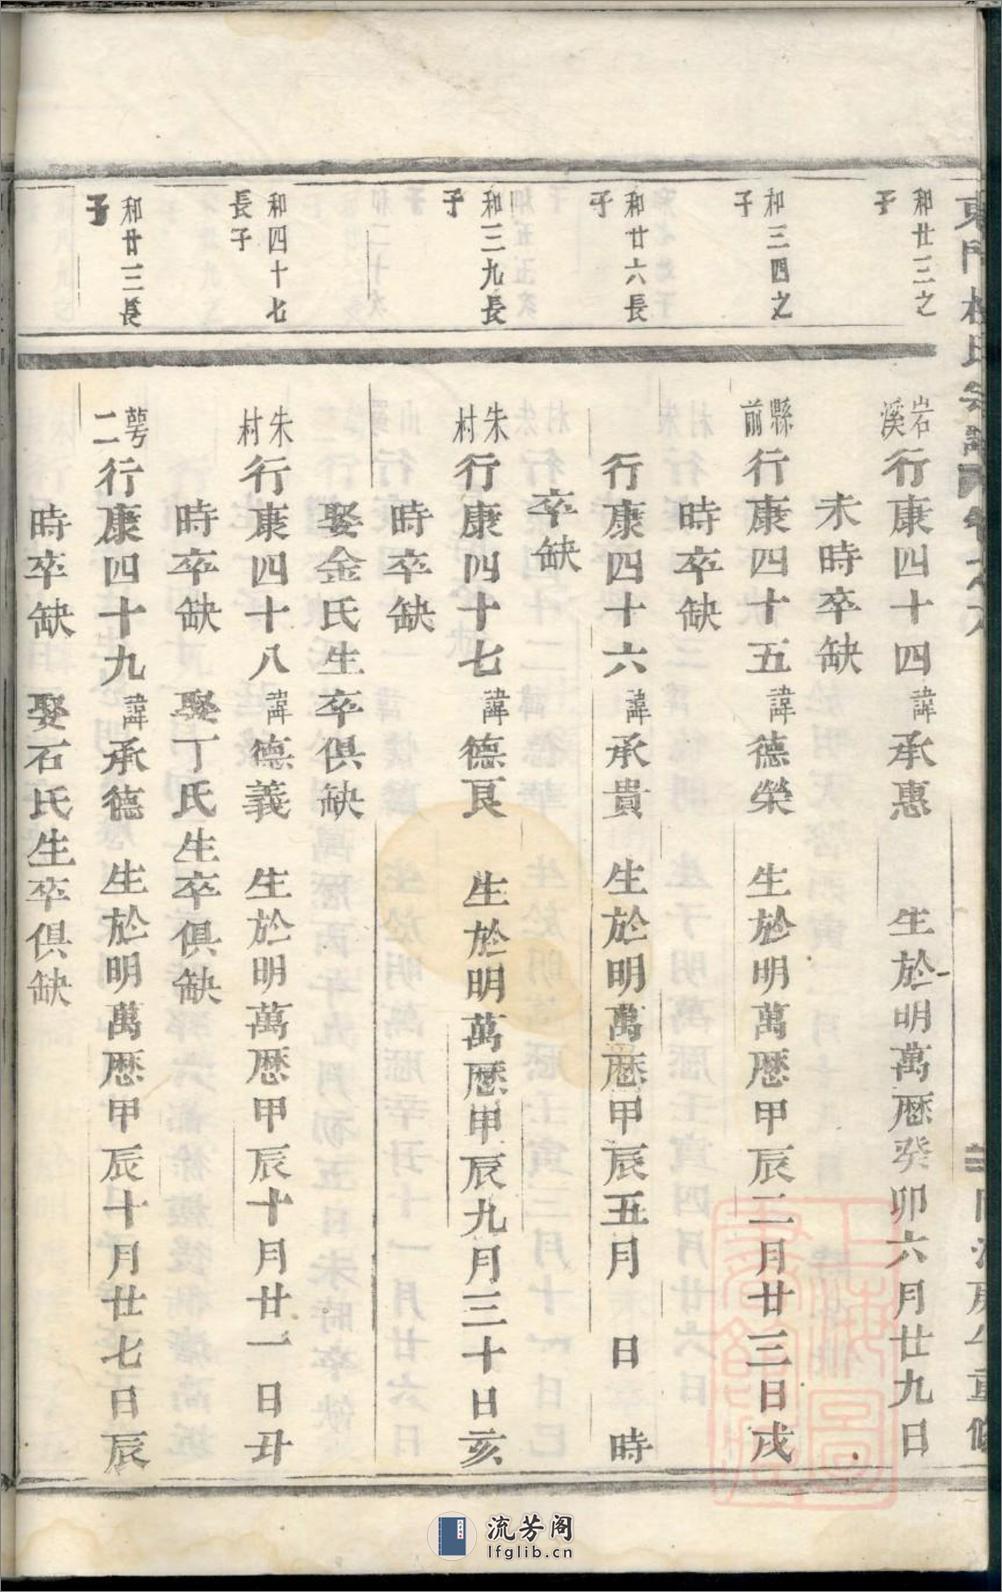 和廿三之子
岩溪
行康四十四諱承惠 生於明萬厯癸卯六月廿九日
未時卒缺
和三四之子
縣前
行康四十五諱德榮 生於明萬厯甲辰二月廿三日戌
時卒缺
和廿六長子
行康四十六諱承貴 生於明萬厯甲辰五月 日 時
卒缺
和三九長子
朱村
行康四十七諱德良 生於明萬厯甲辰九月三十日亥
時卒缺
娶金氏生卒俱缺
和四十七長子
朱村
行康四十八諱德義 生於明萬厯甲辰十月廿一日丑
時卒缺 娶丁氏生卒俱缺
和廿三長子
二
行康四十九諱承德 生於明萬厯甲辰十月廿七日辰
時卒缺 娶石氏生卒俱缺
流芳阁
lfglib.cn